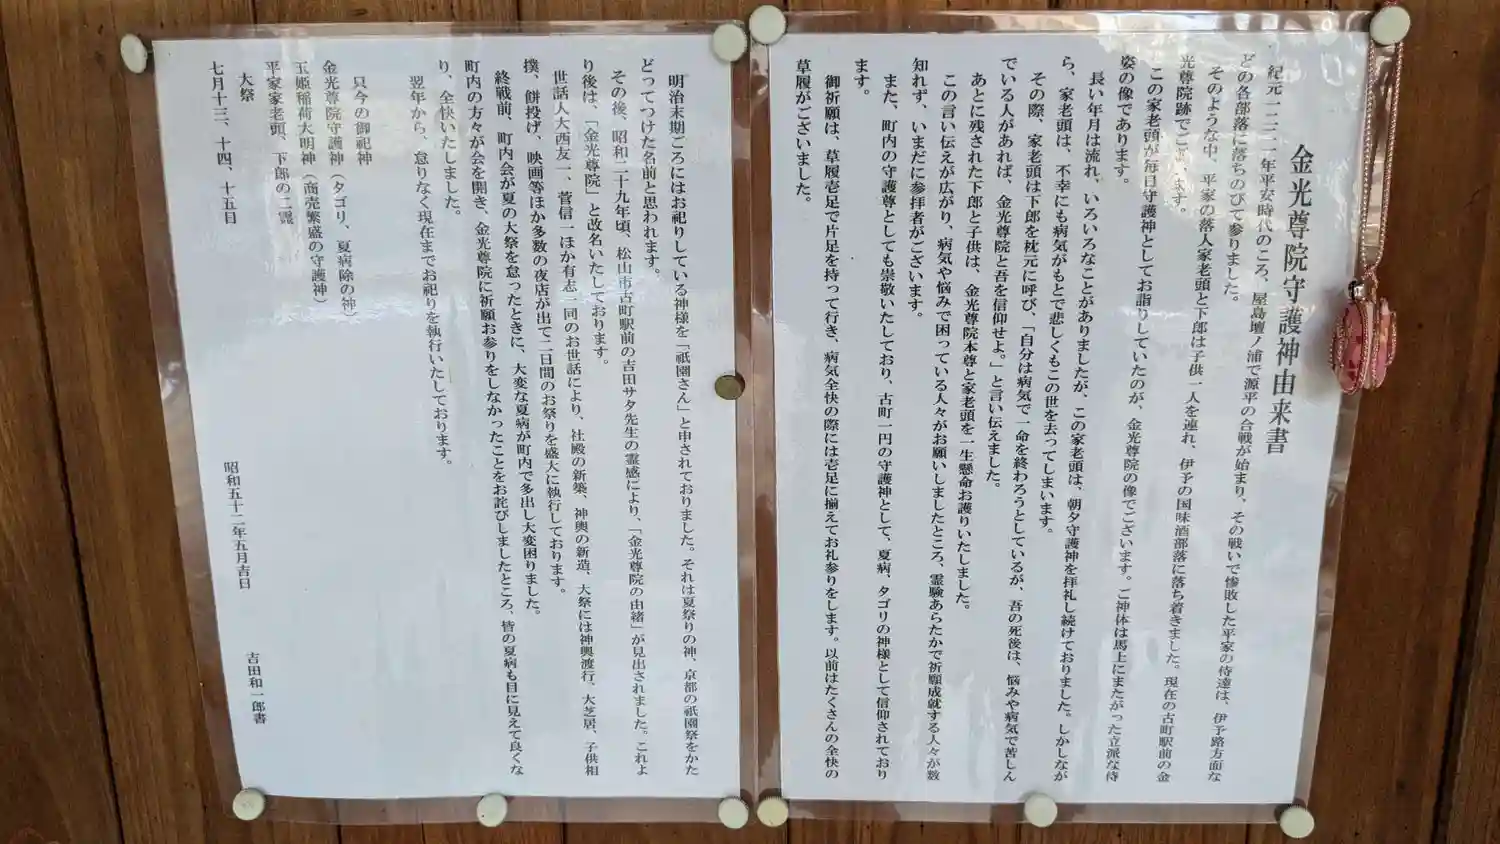 金光尊院守護神由来書
紀元一二二一年平安時代のころ、屋島壇ノ浦で源平の合戦が始まり、その戦いで惨敗した平家の侍達は、伊予路方面な
どの各部落に落ちのびて参りました。
そのような中、平家の落人家老頭と下郎は子供一人を連れ、伊予の国味酒部落に落ち着きました。現在の古町駅前の金
光尊院跡でございます。
この家老頭が毎日守護神としてお詣りしていたのが、金光尊院の像でございます。ご神体は馬上にまたがった立派な侍
姿の像であります。
長い年月は流れ、いろいろなことがありましたが、この家老頭は、朝夕守護神を拝礼し続けておりました。しかしなが
ら、家老頭は、不幸にも病気がもとで悲しくもこの世を去ってしまいます。
その際、家老頭は下郎を枕元に呼び、「自分は病気で一命を終わろうとしているが、吾の死後は、悩みや病気で苦しん
でいる人があれば、金光尊院と吾を信仰せよ。」と言い伝えました。
あとに残された下郎と子供は、金光尊院本尊と家老頭を一生懸命お護りいたしました。
この言い伝えが広がり、病気や悩みで困っている人々がお願いしましたところ、霊験あらたかで祈願成就する人々が数
知れず、いまだに参拝者がございます。
また、町内の守護尊としても崇敬いたしており、古町一円の守護神として、夏病、タゴリの神様として信仰されており
ます。
御祈願は、草履壱足で片足を持って行き、病気全快の際には壱足に揃えてお礼参りをします。以前はたくさんの全快の
草履がございました。
明治末期ごろにはお祀りしている神様を「祇園さん」と申されておりました。それは夏祭りの神、京都の祇園祭をかた
どってつけた名前と思われます。
その後、昭和二十九年頃、松山市古町駅前の吉田サタ先生の霊感により、「金光尊院の由緒」が見出されました。これよ
り後は、「金光尊院」と改名いたしております。
世話人大西友一、菅信一ほか有志一同のお世話により、社殿の新築、神輿の新造、大祭には神輿渡行、大芝居、子供相
撲、餅投げ、映画等ほか多数の夜店が出て二日間のお祭りを盛大に執行しております。
終戦前、町内会が夏の大祭を怠ったときに、大変な夏病が町内で多出し大変困りました。
町内の方々が会を開き、金光尊院に祈願お参りをしなかったことをお詫びしましたところ、皆の夏病も目に見えて良くな
り、全快いたしました。
翌年から、怠りなく現在までお祀りを執行いたしております。
只今の御祀神
金光尊院守護神（タゴリ、夏病除の神）
玉姫稲荷大明神（商売繁盛の守護神）
平家家老頭、下郎の二霊
大祭
七月十三、十四、十五日
昭和五十二年五月吉日
吉田和一郎書